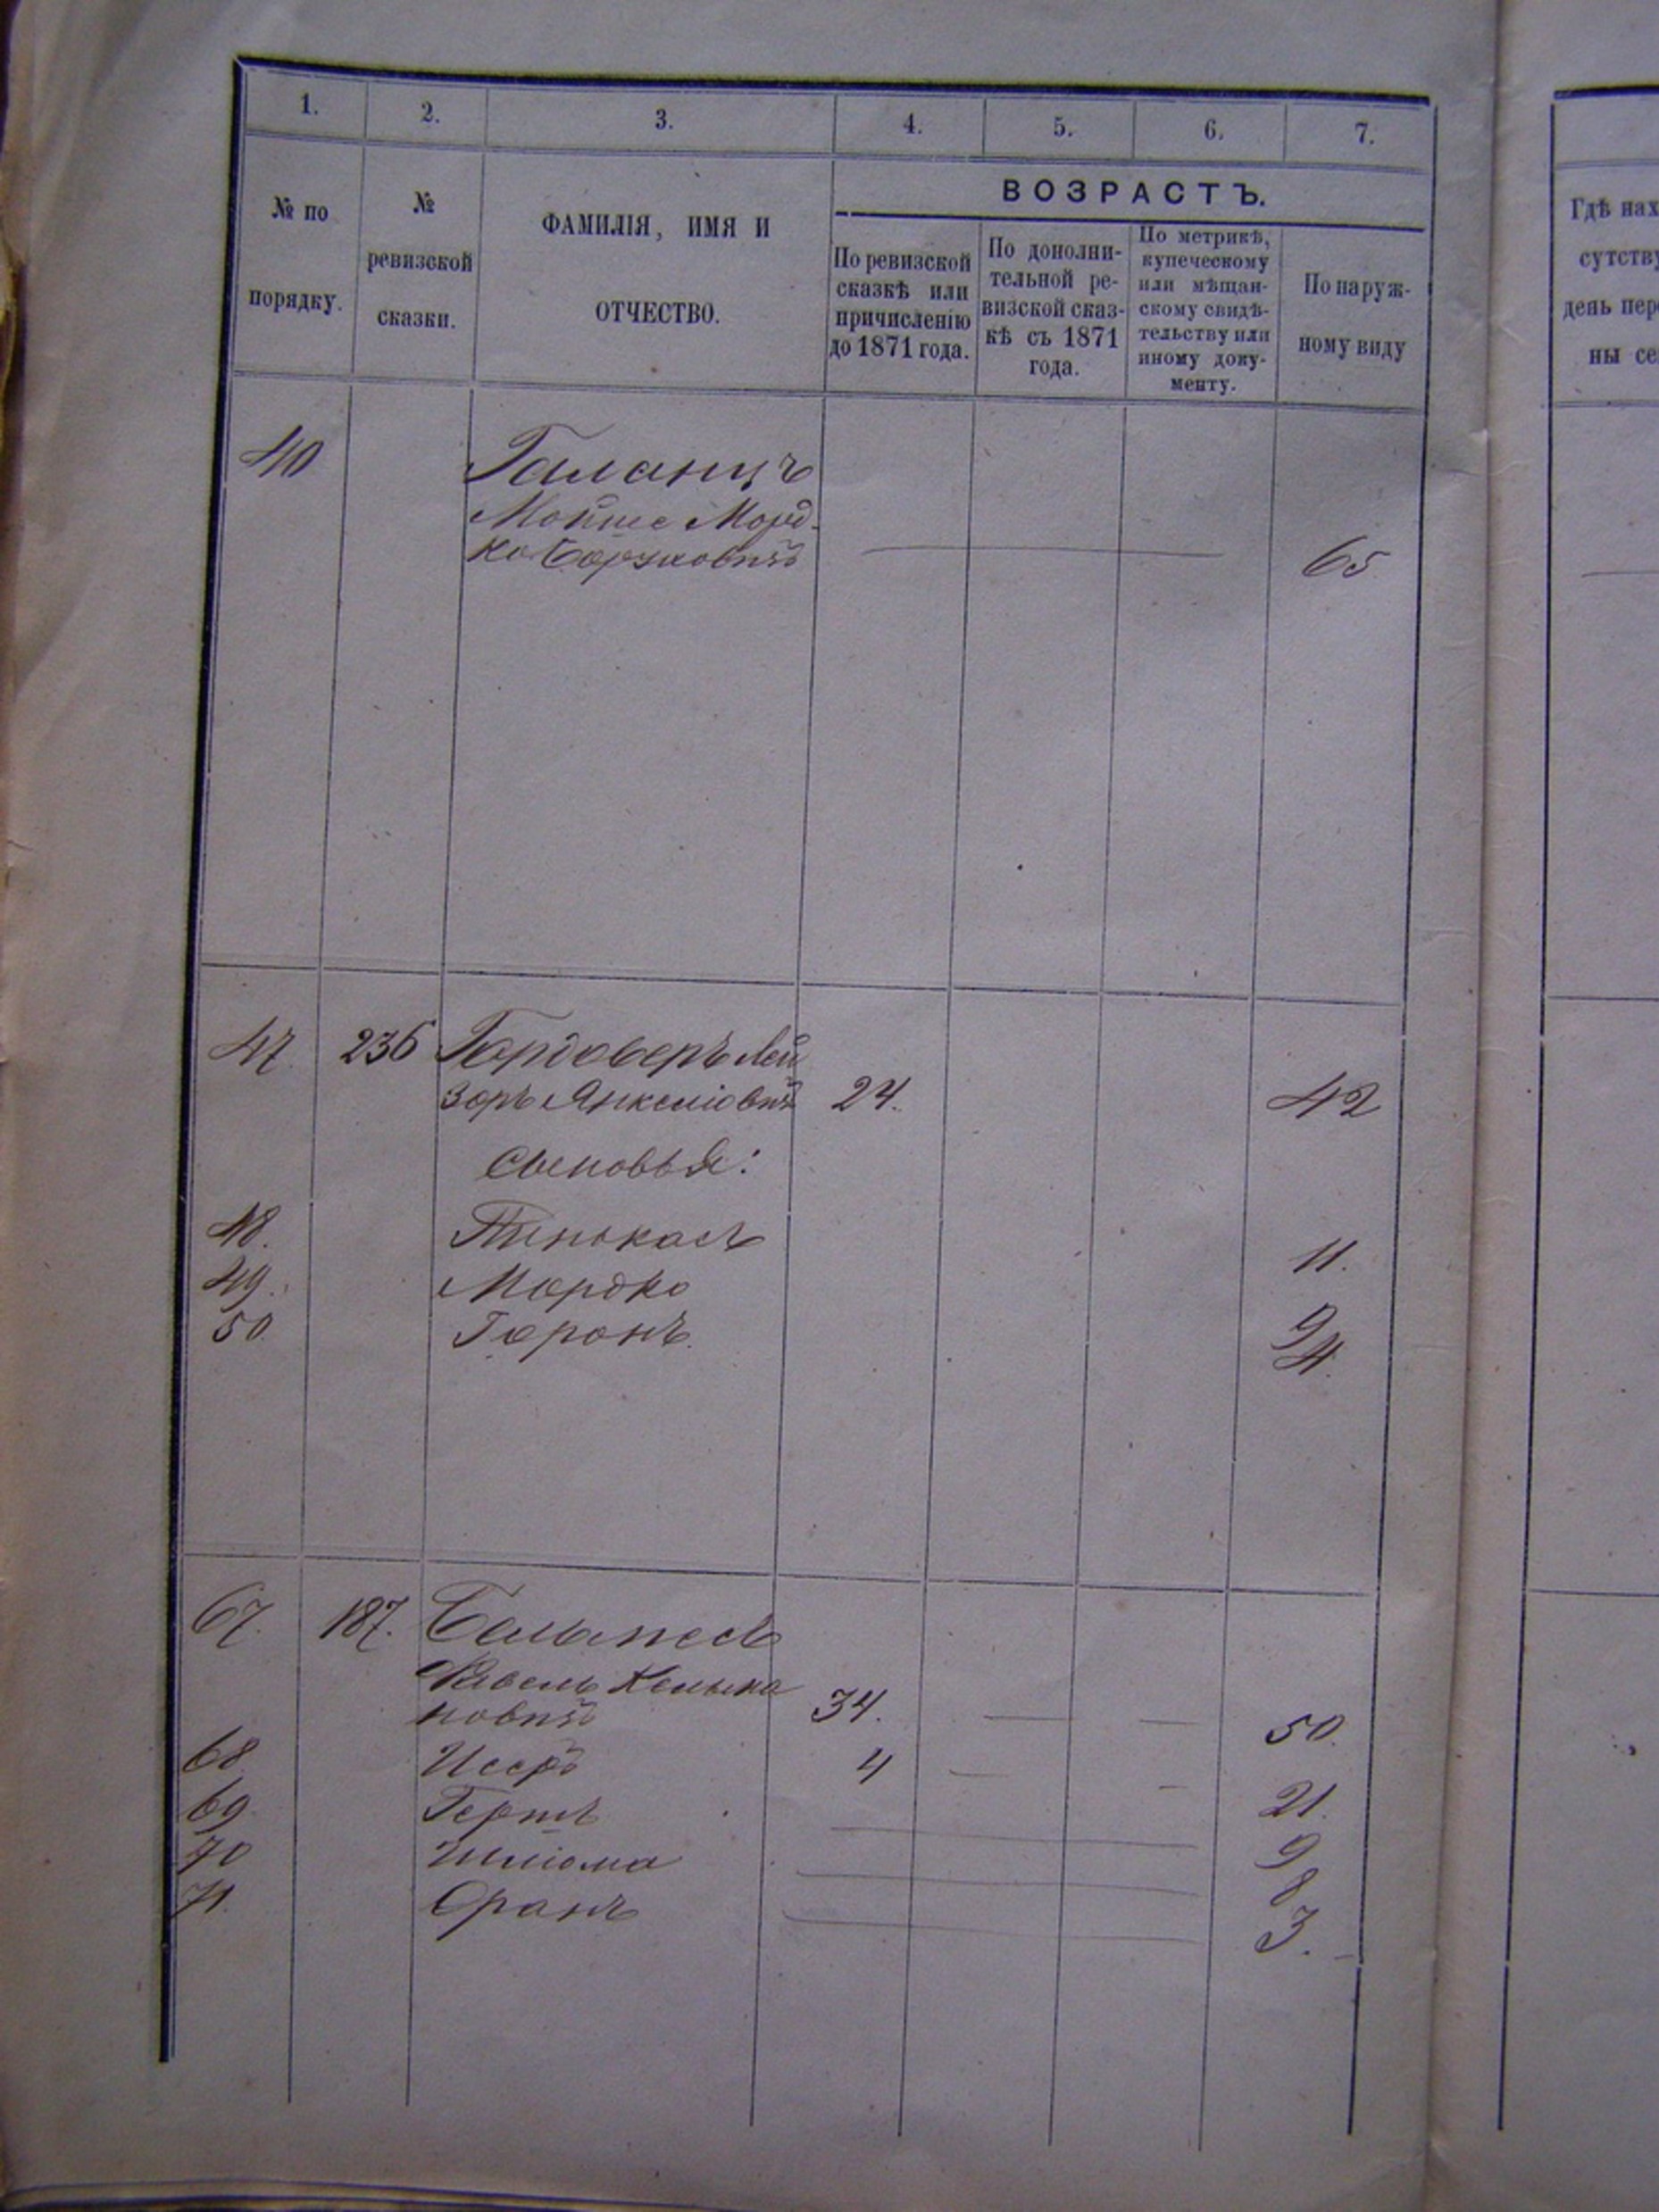 1. 2. 3. 4. 5. 6. 7.
№ по порядку.
№ ревизской сказки.
ФАМИЛІЯ, ИМЯ И
ОТЧЕСТВО.
ВОЗРАСТЪ.
По ревизской
сказкѣ или
причисленію
до 1871 года.
По дополни-
тельной ре-
визской сказ-
кѣ съ 1871
года.
По метрикѣ,
купеческому
или мѣщан-
скому свидѣ-
тельству или
иному доку-
менту.
По наруж-
ному виду
Гдѣ нах
сутству
день пер
ны се
40 Галанцъ
Мойше Морд-
ко Боруховичъ 65
47 236 Гордоверъ Лей
зоръ Янкеліовичъ 24. 42
Сыновья:
48. Пинхасъ 11.
49. Мордко 9
50 Горонъ 4.
67. 187.
новичъ 34. 50.
68 Исеръ 4 21.
69. Гершъ 9
70 Шліома 8
71. Оранъ 3.